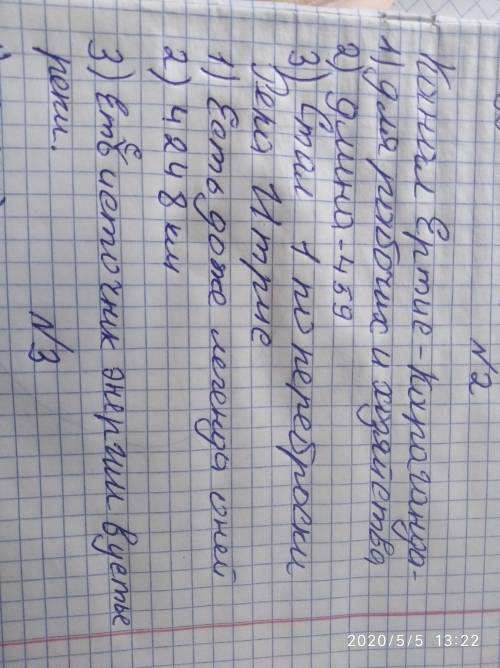 N2
Канал Ертис-Караганда-
1) для рыбалик и хозяйства
2) длина-459
3) Стал 1 по переброски
Река Итрис
1) Есть даже легенда о ней
2) 4248 км
3) Есть источник энергии в устье
реки.
N3
2020/5/5 13:22